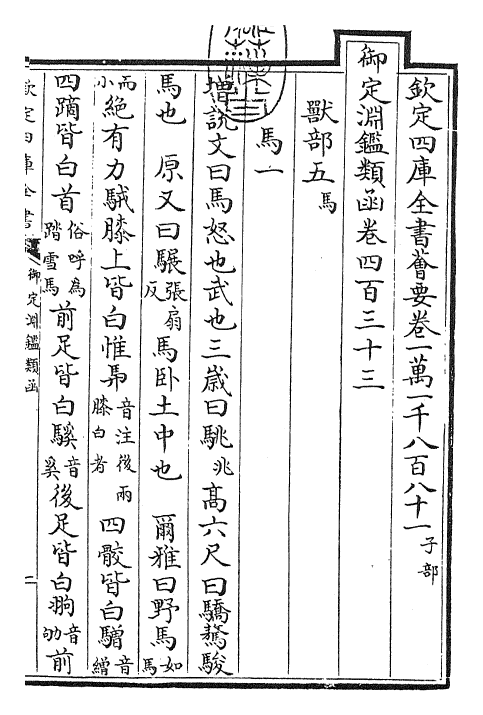 欽定四庫全書薈要卷一萬一千八百八十一子部
御定淵鑑類函卷四百三十三
獸部五馬
馬一
增說文曰馬怒也武也三歲曰駣兆高六尺曰驕驁駿
馬也 原又曰驏張扇反馬卧土中也 爾雅曰野馬如馬
而小絶有力駥膝上皆白惟馵音注後兩膝白者四骹皆白驓音繒
四蹢皆白首俗呼為踏雪馬前足皆白騱音奚後足皆白翑音劬前
欽定四庫全書
御定淵鑑類函